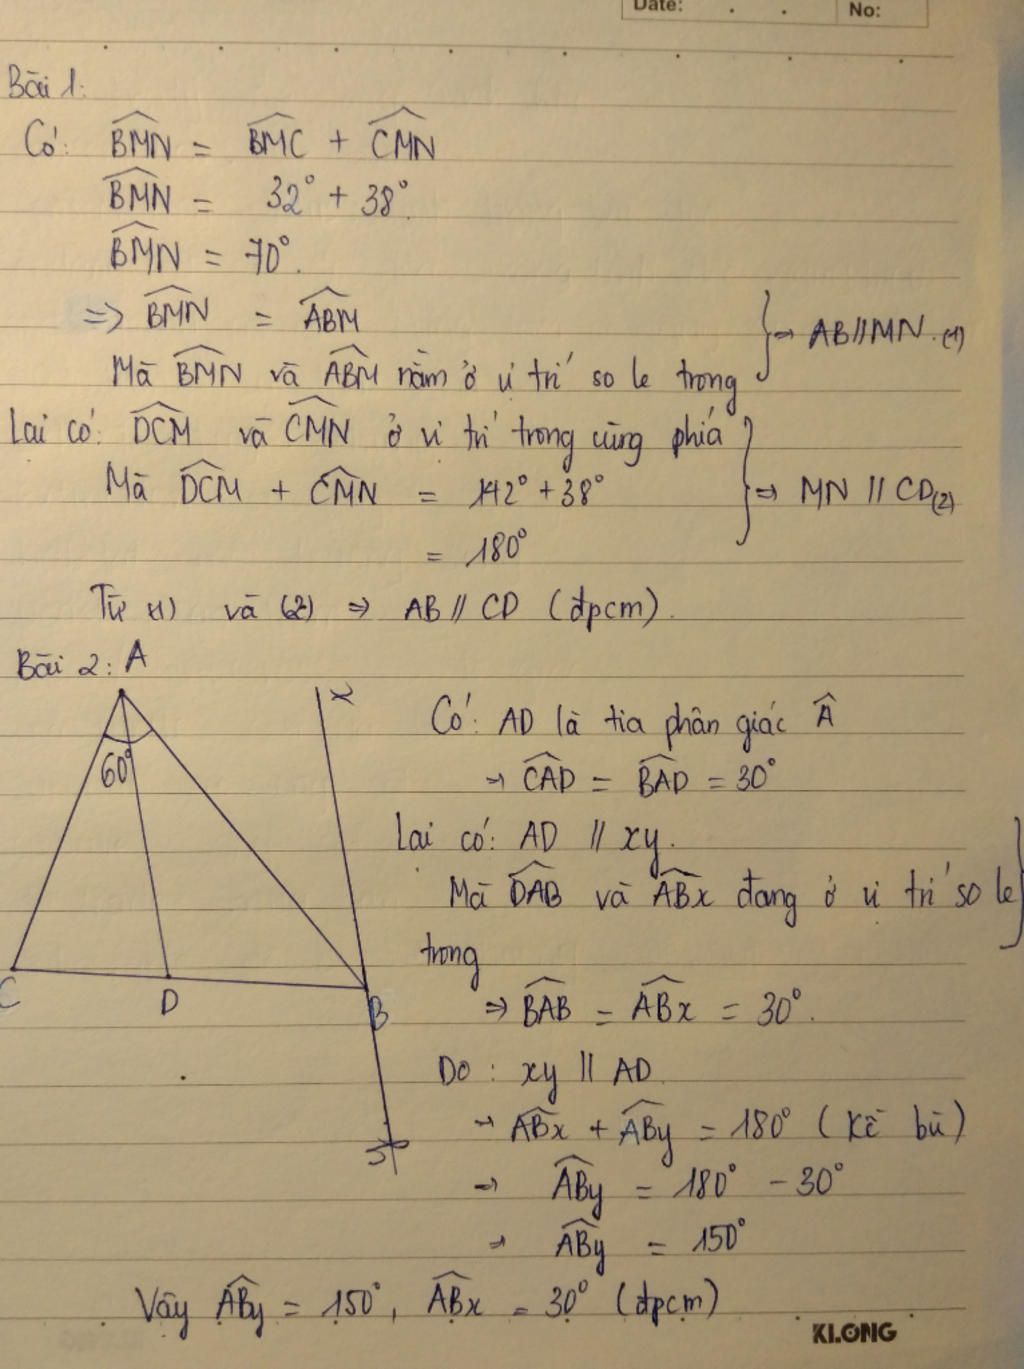 Date: . . No:
Bài 1:
Có: BMN = BMC + CMN
BMN = 32° + 38°.
BMN = 70°.
=> BMN = ABM
→ AB//MN. (1)
Mà BMN và ABM nằm ở vị trí so le trong
Lại có: DCM và CMN ở vị trí trong cùng phía
Mà DCM + CMN = 142° + 38°
=> MN // CD (2)
= 180°
Từ (1) và (2) => AB // CD (đpcm).
Bài 2: A
x
60°
C
D
B
y
Có: AD là tia phân giác Â
→ CAD = BAD = 30°
Lại có: AD // xy.
Mà DAB và ABx đang ở vị trí so le
trong
=> BAB = ABx = 30°.
Do: xy // AD
→ ABx + ABy = 180° (kề bù)
→ ABy = 180° - 30°
→ ABy = 150°
Vậy ABy = 150°, ABx = 30° (đpcm)
KLONG